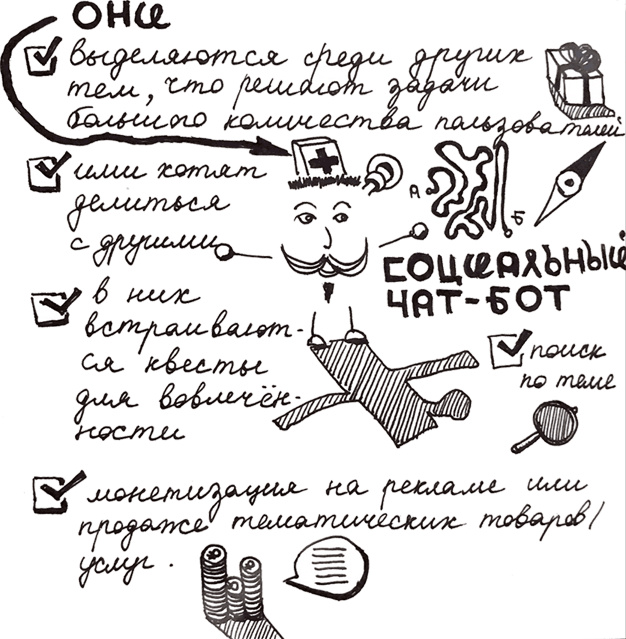 они
выделяются среди других
тем, что решают задачи
большого количества пользователей
ими хотят
делиться
с другими
А
Б
СОЦИАЛЬНЫЙ
ЧАТ-БОТ
в них
встраивают-
ся квесты
для вовлечён-
ности
поиск
по теме
монетизация на рекламе или
продаже тематических товаров/
услуг.